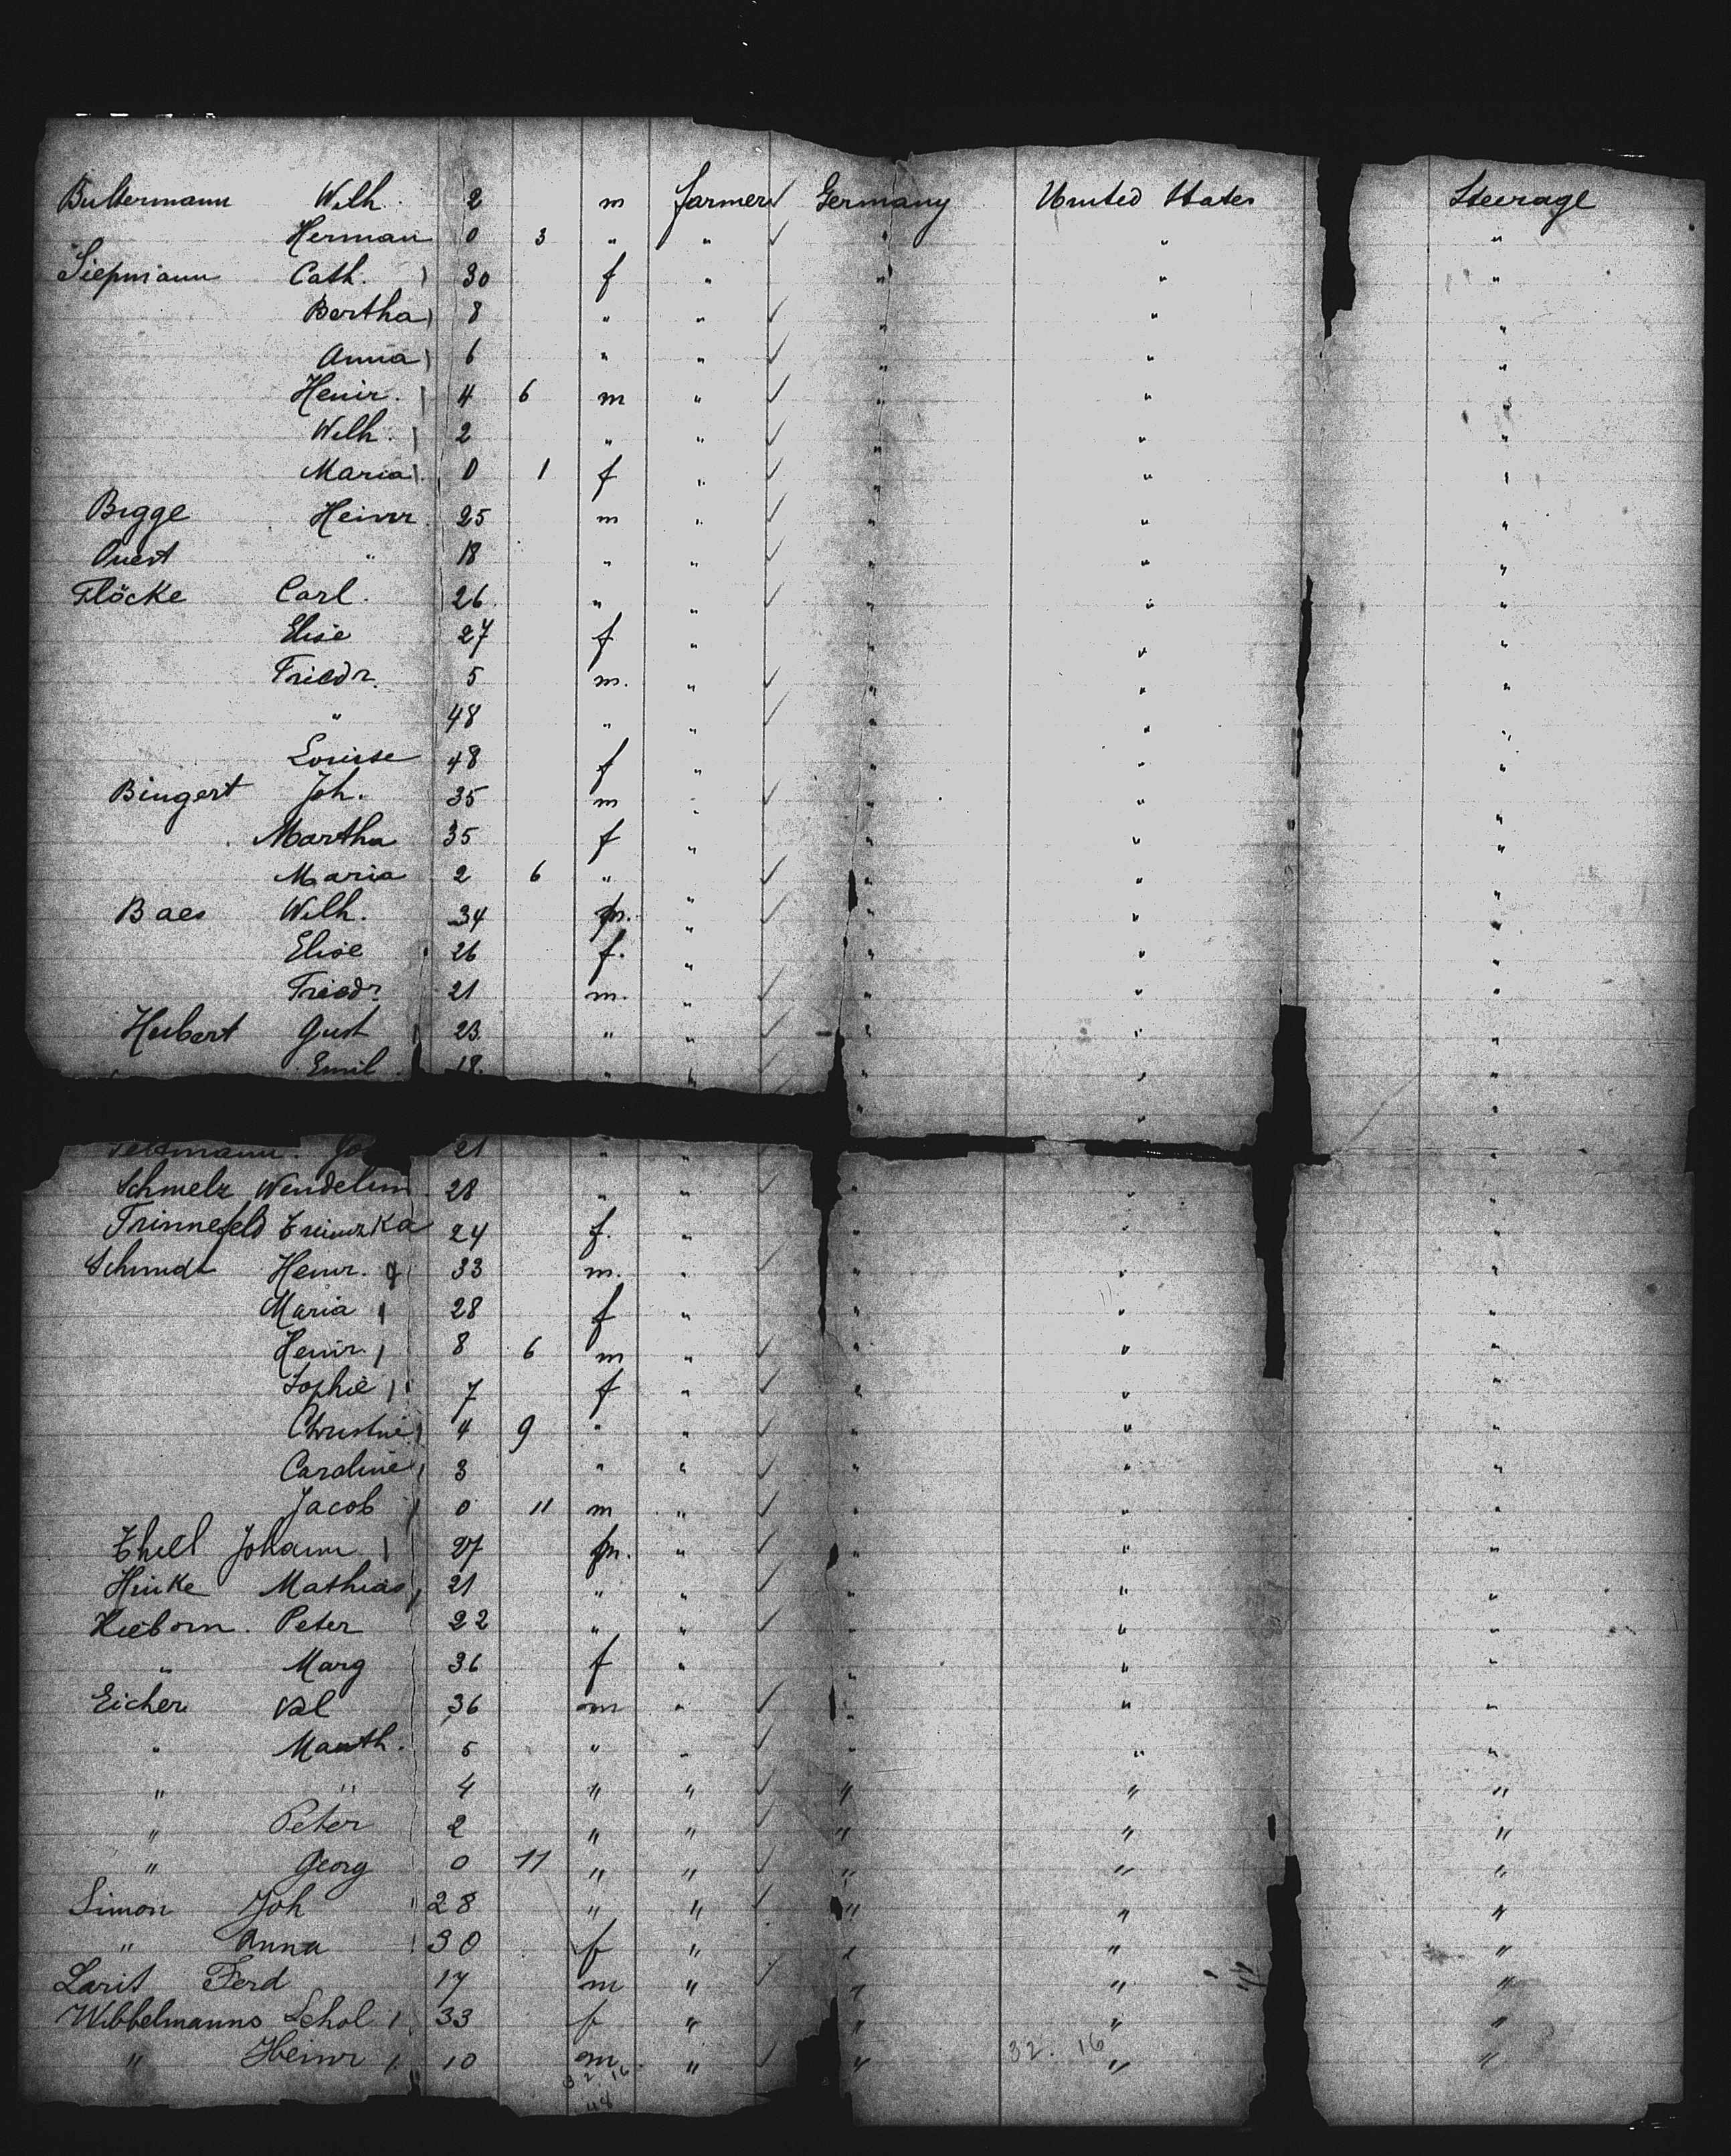 Bultermann Wilh. 2 m farmer ✓ Germany United States Steerage
Herman 0 3 " " ✓ " " "
Siepmann Cath. 30 f " " " "
Bertha 8 " " ✓ " " "
Anna 6 " " ✓ " " "
Heinr. 4 6 m " ✓ " " "
Wilh. 2 " " ✓ " " "
Maria 0 1 f " ✓ " " "
Bigge Heinr. 25 m " ✓ " " "
" 18 " " ✓ " " "
Flöcke Carl. 26 " " ✓ " " "
Elise 27 f " " " "
Friedr. 5 m. " ✓ " " "
" 48 " " ✓ " " "
Louise 48 f " " " "
Bingert Joh. 35 m " ✓ " " "
Martha 35 f " " " "
Maria 2 6 " " ✓ " " "
Baes Wilh. 34 m. " ✓ " " "
Elise 26 f. " " " "
Friedr. 21 m. " ✓ " " "
Hubert Gust 23. " " ✓ " " "
Emil 18. " " ✓ " " "
" " "
21 " " " "
Schmelz Wendelin 28 " " ✓ " " "
Trinnefeld 24 f. " " " "
Schmidt Heinr. 33 m. " ✓ " " "
Maria 28 f " " " "
Heinr. 8 6 m " ✓ " " "
Sophie 7 f " ✓ " " "
Christine 4 9 " " ✓ " " "
Caroline 3 " " ✓ " " "
Jacob 0 11 m " ✓ " " "
Johann 27 m. " ✓ " " "
Hinke Mathias 21 " " ✓ " " "
Peter 22 " " ✓ " " "
" Marg 36 f " " " "
Eicher Val 36 m " ✓ " " "
" Math. 5 " " ✓ " " "
" " 4 " " ✓ " " "
" Peter 2 " " ✓ " " "
" Georg 0 11 " " ✓ " " "
Simon Joh 28 " " ✓ " " "
" Anna 30 f " " " "
Ferd 17 m " ✓ " " "
Wibbelmanns Schol 33 f " " " "
" Heinr 10 m " ✓ " " "
32. 16
32. 16
48